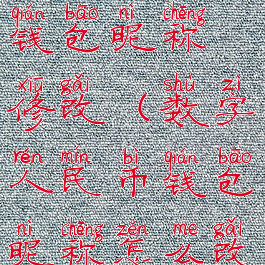 qián bāo nì chēng
钱包昵称
xiū gǎi shù zì
修改(数字
rén mín bì qián bāo
人民币钱包
nì chēng zěn me gǎi
昵称怎么改